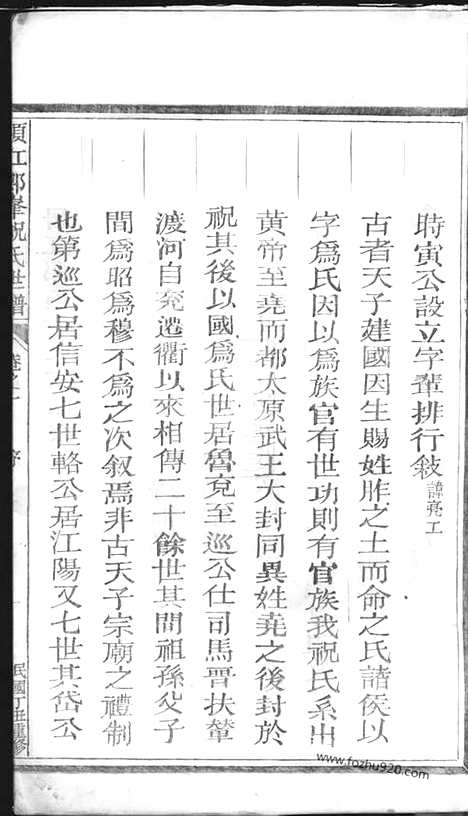 時寅公設立字輩排行敍 諱亮工
古者天子建國因生賜姓胙之土而命之氏諸侯以
字爲氏因以爲族官有世功則有官族我祝氏系出
黃帝至堯而都太原武王大封同異姓堯之後封於
祝其後以國爲氏世居魯兗至巡公仕司馬晋扶輦
渡河自兗遷衢以來相傳二十餘世其間祖孫父子
間爲昭爲穆不爲之次叙焉非古天子宗廟之禮制
也第巡公居信安七世輅公居江陽又七世其岱公
須江郎峯祝氏世譜
卷之一 序
民國丁亥重修
www.fozhu920.com